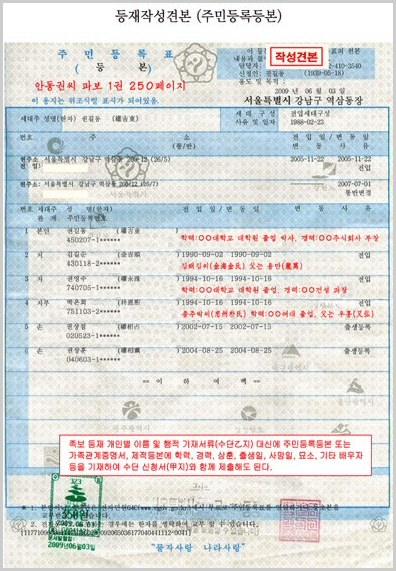 등재작성견본 (주민등록등본)
주 민 등 록 표
( 등 본 )
작성견본
안동권씨 파보 1권 250페이지
이 용지는 위조식별 표시가 되어있음.
담당자:
신청인: 권길동 (1939-05-18)
용도 및 목적 :
2009 년 06 월 03 일
서울특별시 강남구 역삼동장
세대주 성명(한자) 권길동 (權吉東)
세 대 구 성
사유 및 일자
전입세대구성
1988-02-23
번호 주 소
(통/반)
전 입 일 / 변 동 일
변 동 사 유
현주소 서울특별시 강남구 역삼동
(26/5)
2005-11-22 2005-11-22
전 입
전입
현주소: 서울특별시 강남구 역삼동
(26/7)
2007-07-01
통반변경
번호 세대주 성 명(한자)
관 계 주민등록번호
전 입 일 / 변 동 일 변 동 사 유
1 본인 권길동
450207-1******
학력:○○대학교 대학원 졸업 박사, 경력:○○주식회사 부장
2 처 김길순 (金吉順) 1990-09-02 1990-09-02 전입
430118-2******
김해김씨(金海金氏) 父는 용만(龍萬)
3 자 권영수 1994-10-16 1994-10-16 전입
740705-1******
학력:○○대학교 대학원 졸업, 경력:○○건설 과장
4 자부 박은희 1994-10-16 1994-10-16 전입
751103-2******
충주박씨(忠州朴氏) 학력:○○여대 졸업, 父는 우홍(又弘)
5 손 권상점 2002-07-15 2002-07-15 출생등록
020523-1******
6 손 권상훈 2004-08-25 2004-08-25 출생등록
040603-1******
== 이 하 여 백 ==
족보 등재 개인별 이름 및 행적 기재서류(수단乙지) 대신에 주민등록등본 또는
가족관계증명서, 제적등본에 학력, 경력, 상훈, 출생일, 사망일, 묘소, 기타 배우자
등을 기재하여 수단 신청서(甲지)와 함께 제출해도 된다.
2009년06월03일
"물자사랑 나라사랑"